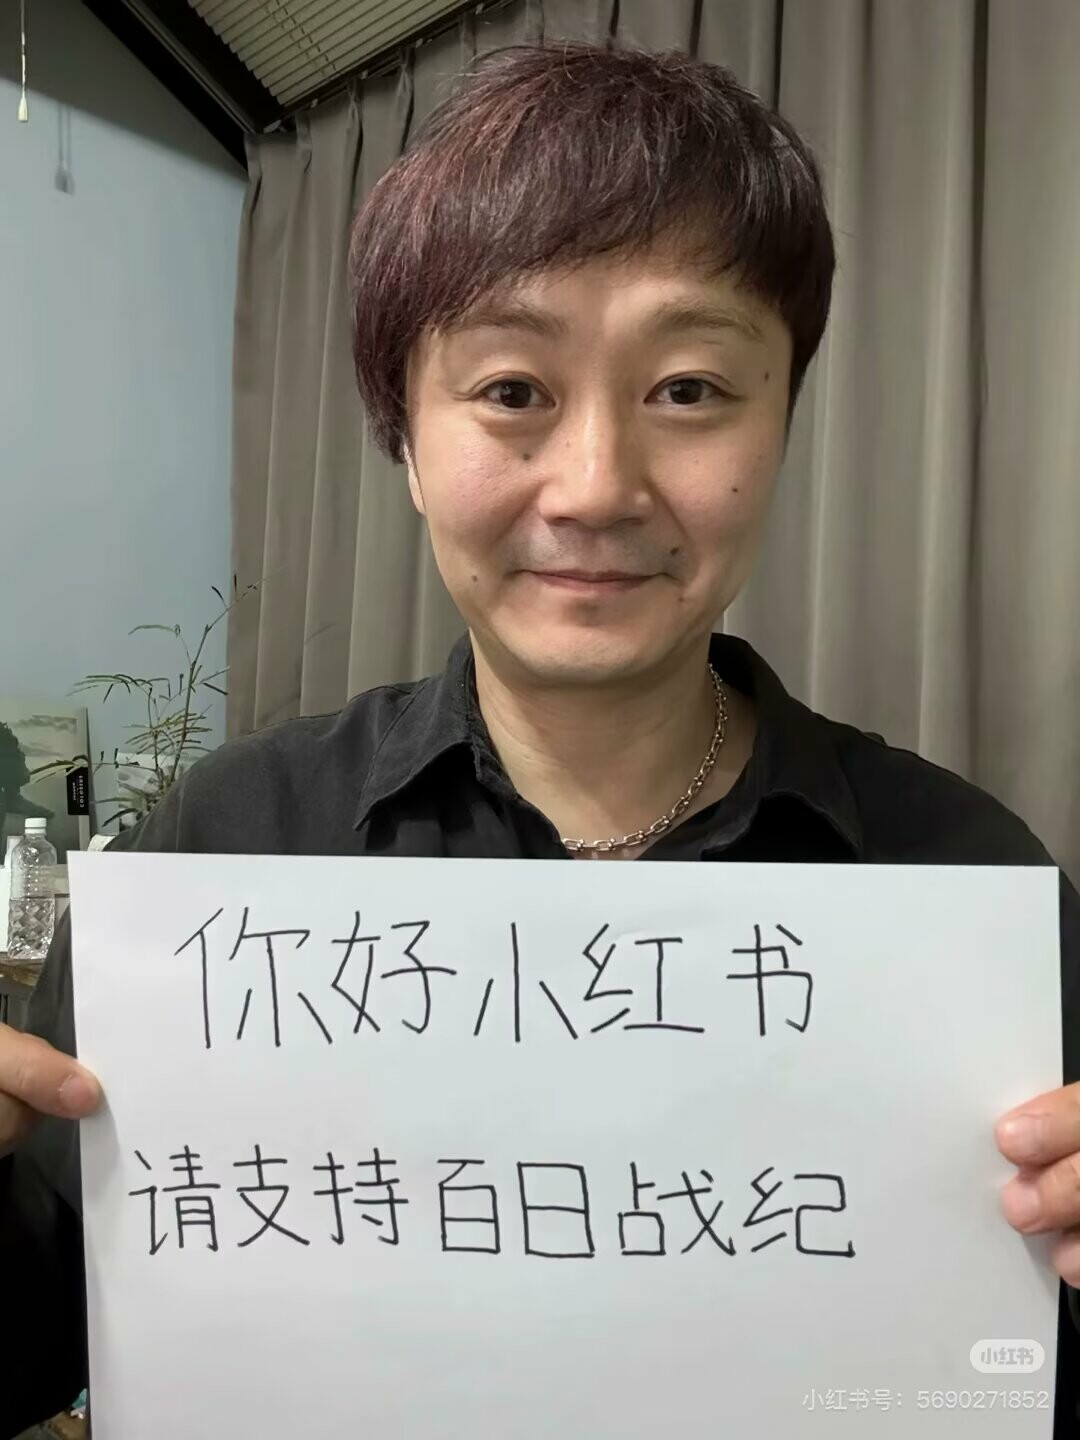 你好小红书
请支持百日战纪
小红书
小红书号：5690271852